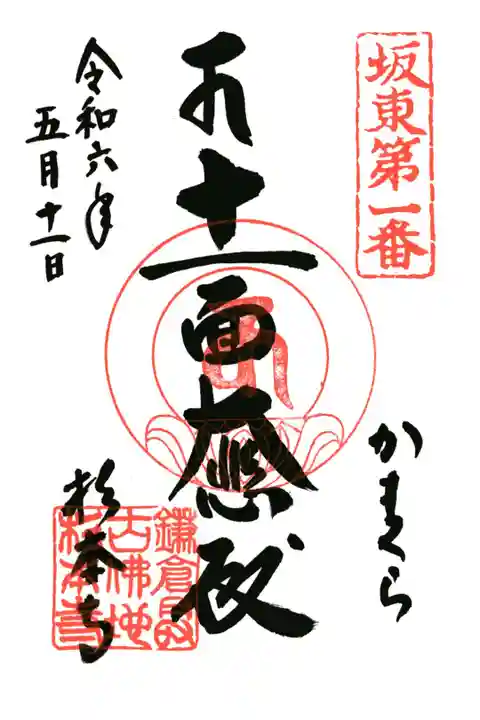 坂東第一番
かまくら
十一面大悲殿
令和六年
五月十一日
杉本寺
鎌倉最
古佛地
杉本寺